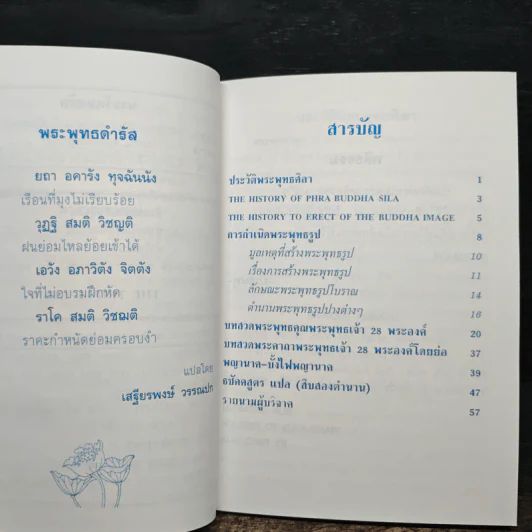 พระพุทธดำรัส
ยถา อคารัง ทุจฉันนัง
เรือนที่มุงไม่เรียบร้อย
วุฏฐิ สมติ วิชฌติ
ฝนย่อมไหลย้อยเข้าได้
เอวัง อภาวิตัง จิตตัง
ใจที่ไม่อบรมฝึกหัด
ราโค สมติ วิชฌติ
ราคะกำหนัดย่อมครอบงำ
แปลโดย
เสฐียรพงษ์ วรรณปก
สารบัญ
ประวัติพระพุทธศิลา 1
THE HISTORY OF PHRA BUDDHA SILA 3
THE HISTORY TO ERECT OF THE BUDDHA IMAGE 5
การกำเนิดพระพุทธรูป 8
มูลเหตุที่สร้างพระพุทธรูป 10
เรื่องการสร้างพระพุทธรูป 11
ลักษณะพระพุทธรูปโบราณ 14
ตำนานพระพุทธรูปปางต่างๆ 16
บทสวดพระพุทธคุณพระพุทธเจ้า 28 พระองค์ 20
บทสวดพระคาถาพระพุทธเจ้า 28 พระองค์โดยย่อ 37
พญานาค-บั้งไฟพญานาค 39
ธชัคคสูตร แปล (สิบสองตำนาน) 47
รายนามผู้บริจาค 57